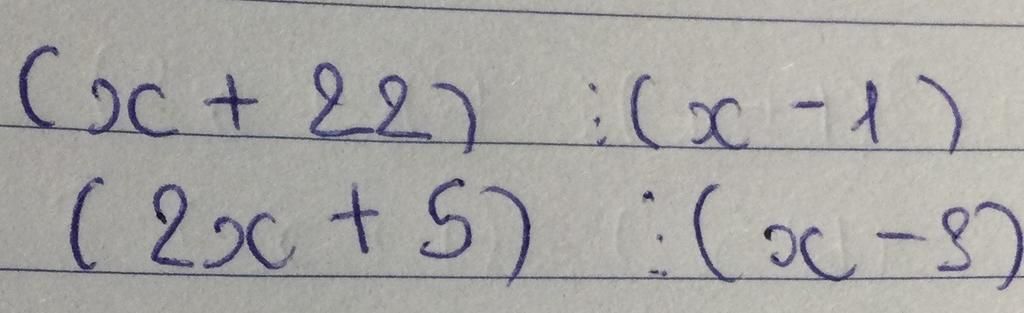 (x + 22) ⋮ (x - 1)
(2x + 5) ⋮ (x - 3)